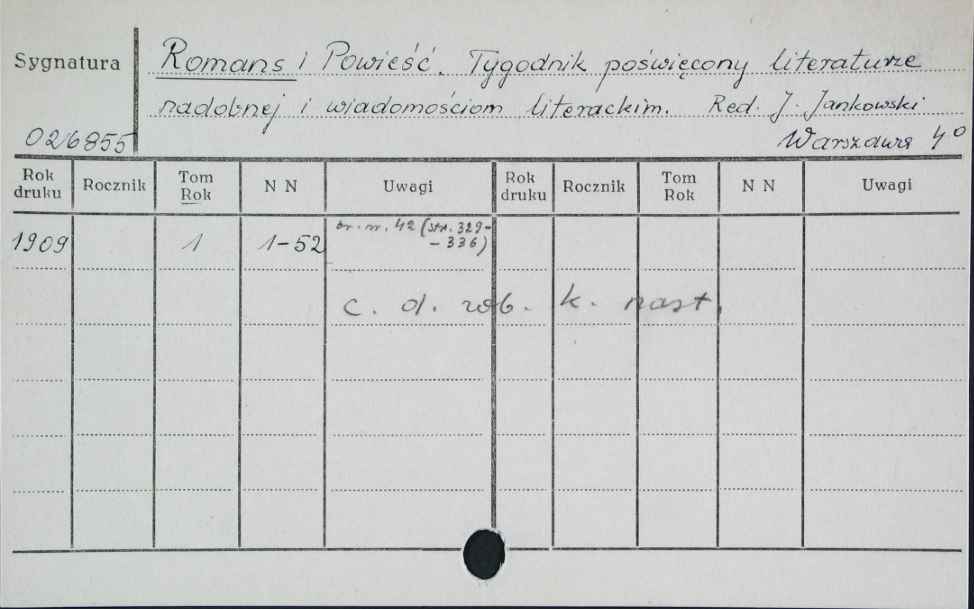 Sygnatura
Romans i Powieść. Tygodnik poświęcony literaturze
nadobnej i wiadomościom literackim. Red. J. Jankowski
026855 Warszawa 4°
Rok druku Rocznik Tom Rok N N Uwagi Rok druku Rocznik Tom Rok N N Uwagi
1909 1 1-52 br. nr. 42 (str. 329-
- 336)
c. d. zob. k. nast.